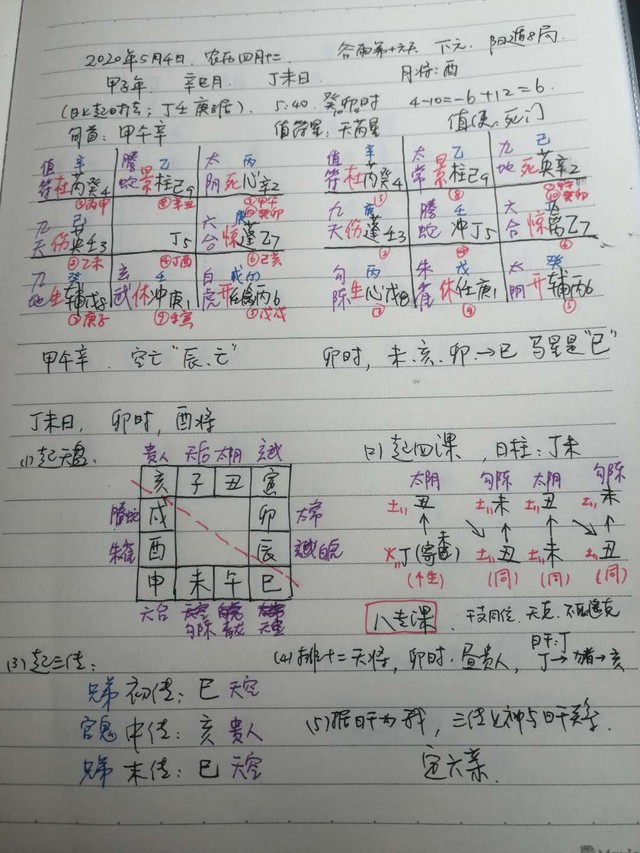 2020年5月4日 农历四月十二 谷雨第十六天 下元 阳遁8局
辛巳月 丁未日 月将：酉
5:40 癸卯时 4-10=-6+12=6
旬首：甲午辛 值符星：天芮星 值使：死门
值符 辛 杜芮癸4 腾蛇 乙 景柱己9 太阴 丙 死心辛2 值符 辛 杜芮癸4 太常 乙 景柱己9 九地 己 死英辛2
九天 己 伤英壬3 丁5 六合 惊蓬乙7 九天 伤蓬壬3 腾蛇 壬 冲丁5 六合 惊 乙7
九地 癸 生辅戊8 玄武 壬 休冲庚1 白虎 戊 开 丙6 勾陈 丙 生心戊8 朱雀 戊 休任庚1 太阴 癸 开辅丙6
甲午辛 空亡"辰、巳" 卯时，未、亥、卯→巳 马星是"巳"
丁未日，卯时，酉将
(1)起天盘 (2)起四课，日柱：丁未
贵人 天后 太阴 玄武 太阴 勾陈 太阴 勾陈
亥 子 丑 寅 土 丑 土 未 土 丑 土 未
腾蛇 戌 卯 太常
朱雀 酉 辰 白虎 火 丁(寄未) 土 丑 土 未 土 丑
申 未 午 巳 (同) (同) (同)
六合 勾陈 青龙 天空 八专课 干支同位，无克，不取遥克
(3)起三传： (4)排十二天将，卯时，昼贵人，日干：丁 丁→猪→亥
兄弟 初传：巳 天空
官鬼 中传：亥 贵人 (5)据日干为我，三传之神与日干关系，
兄弟 末传：巳 天空 定六亲